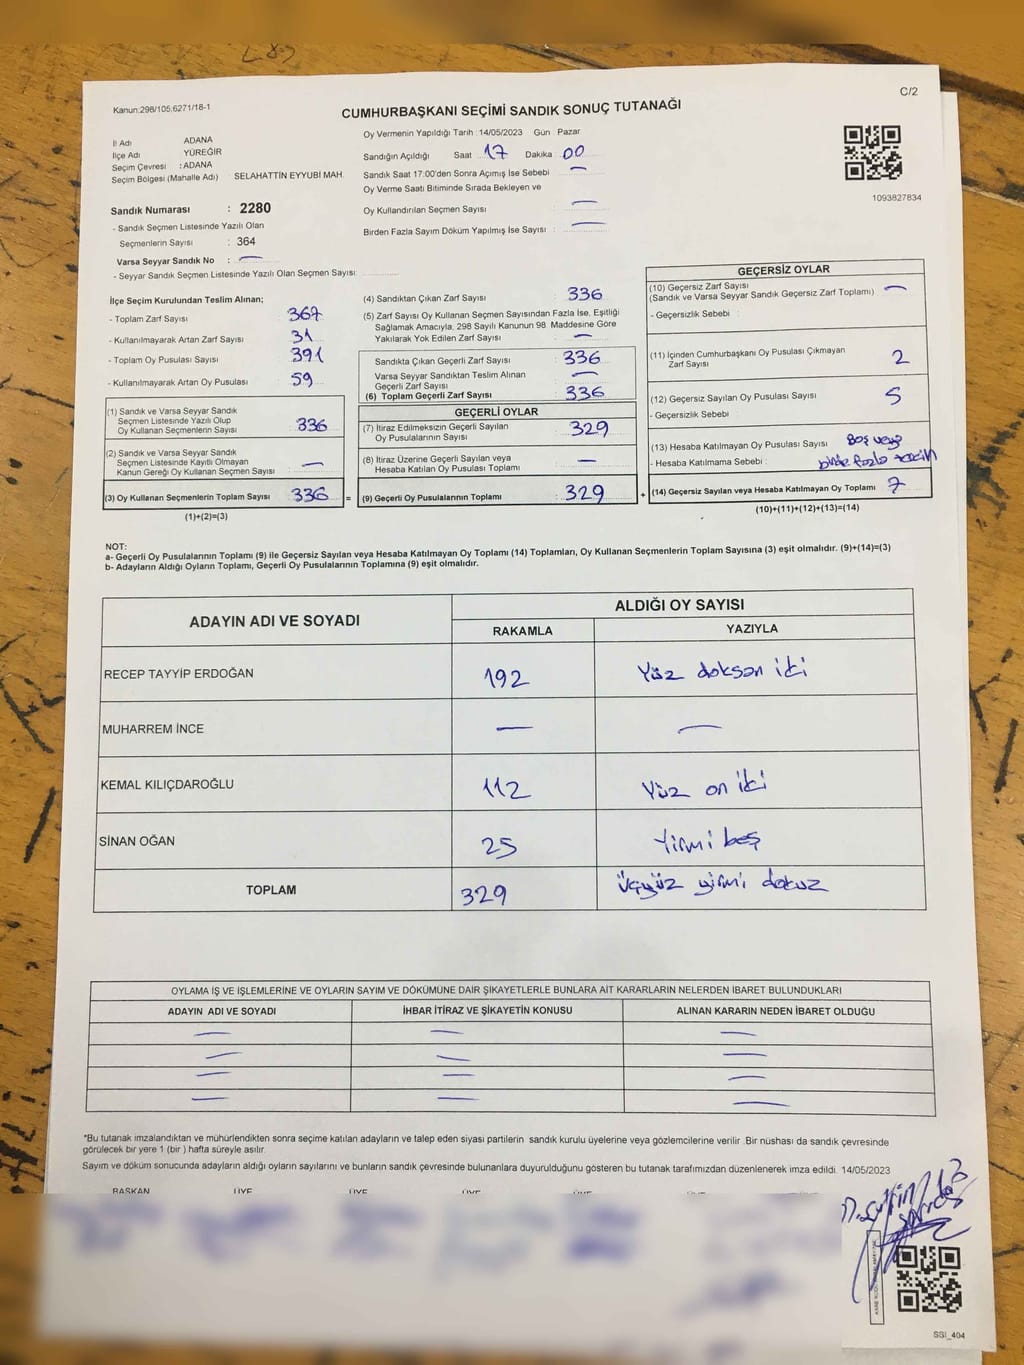 C/2
Kanun:298/105;6271/18-1
CUMHURBAŞKANI SEÇİMİ SANDIK SONUÇ TUTANAĞI
İl Adı ADANA
İlçe Adı YÜREĞİR
Seçim Çevresi : ADANA
Seçim Bölgesi (Mahalle Adı) : SELAHATTİN EYYUBİ MAH.
Oy Vermenin Yapıldığı Tarih : 14/05/2023 Gün Pazar
Sandığın Açıldığı Saat 17 Dakika 00
Sandık Saat 17:00'den Sonra Açımış İse Sebebi —
Oy Verme Saati Bitiminde Sırada Bekleyen ve
Oy Kullandırılan Seçmen Sayısı —
Birden Fazla Sayım Döküm Yapılmış İse Sayısı : —
1093827834
Sandık Numarası : 2280
- Sandık Seçmen Listesinde Yazılı Olan
Seçmenlerin Sayısı : 364
Varsa Seyyar Sandık No : —
- Seyyar Sandık Seçmen Listesinde Yazılı Olan Seçmen Sayısı:
İlçe Seçim Kurulundan Teslim Alınan;
- Toplam Zarf Sayısı 367
- Kullanılmayarak Artan Zarf Sayısı 31
- Toplam Oy Pusulası Sayısı 391
- Kullanılmayarak Artan Oy Pusulası 59
(1) Sandık ve Varsa Seyyar Sandık
Seçmen Listesinde Yazılı Olup
Oy Kullanan Seçmenlerin Sayısı 336
(2) Sandık ve Varsa Seyyar Sandık
Seçmen Listesinde Kayıtlı Olmayan
Kanun Gereği Oy Kullanan Seçmen Sayısı —
(3) Oy Kullanan Seçmenlerin Toplam Sayısı 336 =
(1)+(2)=(3)
(4) Sandıktan Çıkan Zarf Sayısı : 336
(5) Zarf Sayısı Oy Kullanan Seçmen Sayısından Fazla İse, Eşitliği
Sağlamak Amacıyla, 298 Sayılı Kanunun 98. Maddesine Göre
Yakılarak Yok Edilen Zarf Sayısı : —
Sandıkta Çıkan Geçerli Zarf Sayısı : 336
Varsa Seyyar Sandıktan Teslim Alınan
Geçerli Zarf Sayısı —
(6) Toplam Geçerli Zarf Sayısı : 336
GEÇERLİ OYLAR
(7) İtiraz Edilmeksizin Geçerli Sayılan
Oy Pusulalarının Sayısı 329
(8) İtiraz Üzerine Geçerli Sayılan veya
Hesaba Katılan Oy Pusulası Toplamı —
(9) Geçerli Oy Pusulalarının Toplamı : 329 +
GEÇERSİZ OYLAR
(10) Geçersiz Zarf Sayısı
(Sandık ve Varsa Seyyar Sandık Geçersiz Zarf Toplamı) —
- Geçersizlik Sebebi :
(11) İçinden Cumhurbaşkanı Oy Pusulası Çıkmayan
Zarf Sayısı 2
(12) Geçersiz Sayılan Oy Pusulası Sayısı 5
- Geçersizlik Sebebi
(13) Hesaba Katılmayan Oy Pusulası Sayısı Boş veya
- Hesaba Katılmama Sebebi : birden fazla tercih
(14) Geçersiz Sayılan veya Hesaba Katılmayan Oy Toplamı 7
(10)+(11)+(12)+(13)=(14)
NOT:
a- Geçerli Oy Pusulalarının Toplamı (9) ile Geçersiz Sayılan veya Hesaba Katılmayan Oy Toplamı (14) Toplamları, Oy Kullanan Seçmenlerin Toplam Sayısına (3) eşit olmalıdır. (9)+(14)=(3)
b- Adayların Aldığı Oyların Toplamı, Geçerli Oy Pusulalarının Toplamına (9) eşit olmalıdır.
ADAYIN ADI VE SOYADI
ALDIĞI OY SAYISI
RAKAMLA YAZIYLA
RECEP TAYYİP ERDOĞAN 192 Yüz doksan iki
MUHARREM İNCE — —
KEMAL KILIÇDAROĞLU 112 Yüz on iki
SİNAN OĞAN 25 Yirmi beş
TOPLAM 329 Üçyüz yirmi dokuz
OYLAMA İŞ VE İŞLEMLERİNE VE OYLARIN SAYIM VE DÖKÜMÜNE DAİR ŞİKAYETLERLE BUNLARA AİT KARARLARIN NELERDEN İBARET BULUNDUKLARI
ADAYIN ADI VE SOYADI İHBAR İTİRAZ VE ŞİKAYETİN KONUSU ALINAN KARARIN NEDEN İBARET OLDUĞU
— — —
— — —
— — —
— — —
*Bu tutanak imzalandıktan ve mühürlendikten sonra seçime katılan adayların ve talep eden siyasi partilerin sandık kurulu üyelerine veya gözlemcilerine verilir .Bir nüshası da sandık çevresinde
görülecek bir yere 1 (bir ) hafta süreyle asılır.
Sayım ve döküm sonucunda adayların aldığı oyların sayılarını ve bunların sandık çevresinde bulunanlara duyurulduğunu gösteren bu tutanak tarafımızdan düzenlenerek imza edildi. 14/05/2023
BAŞKAN ÜYE ÜYE ÜYE ÜYE
SSI_404